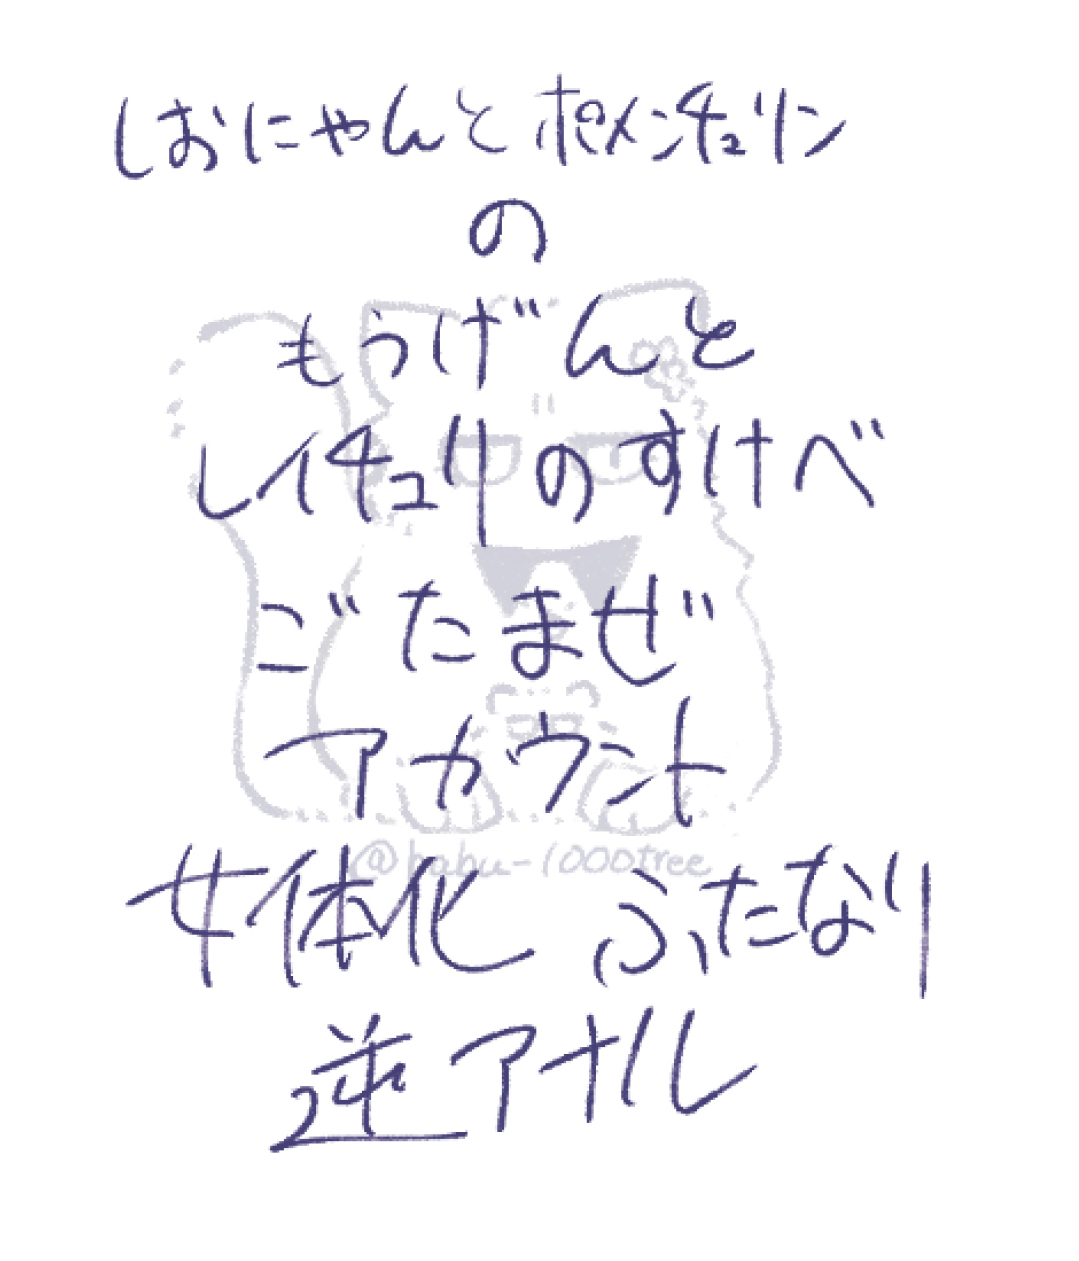 しおにゃんとポメンチュリン
の
もうげんと
レイチュリのすけべ
ごたまぜ
アカウント
@babu-1000tree
女体化 ふたなり
逆アナル